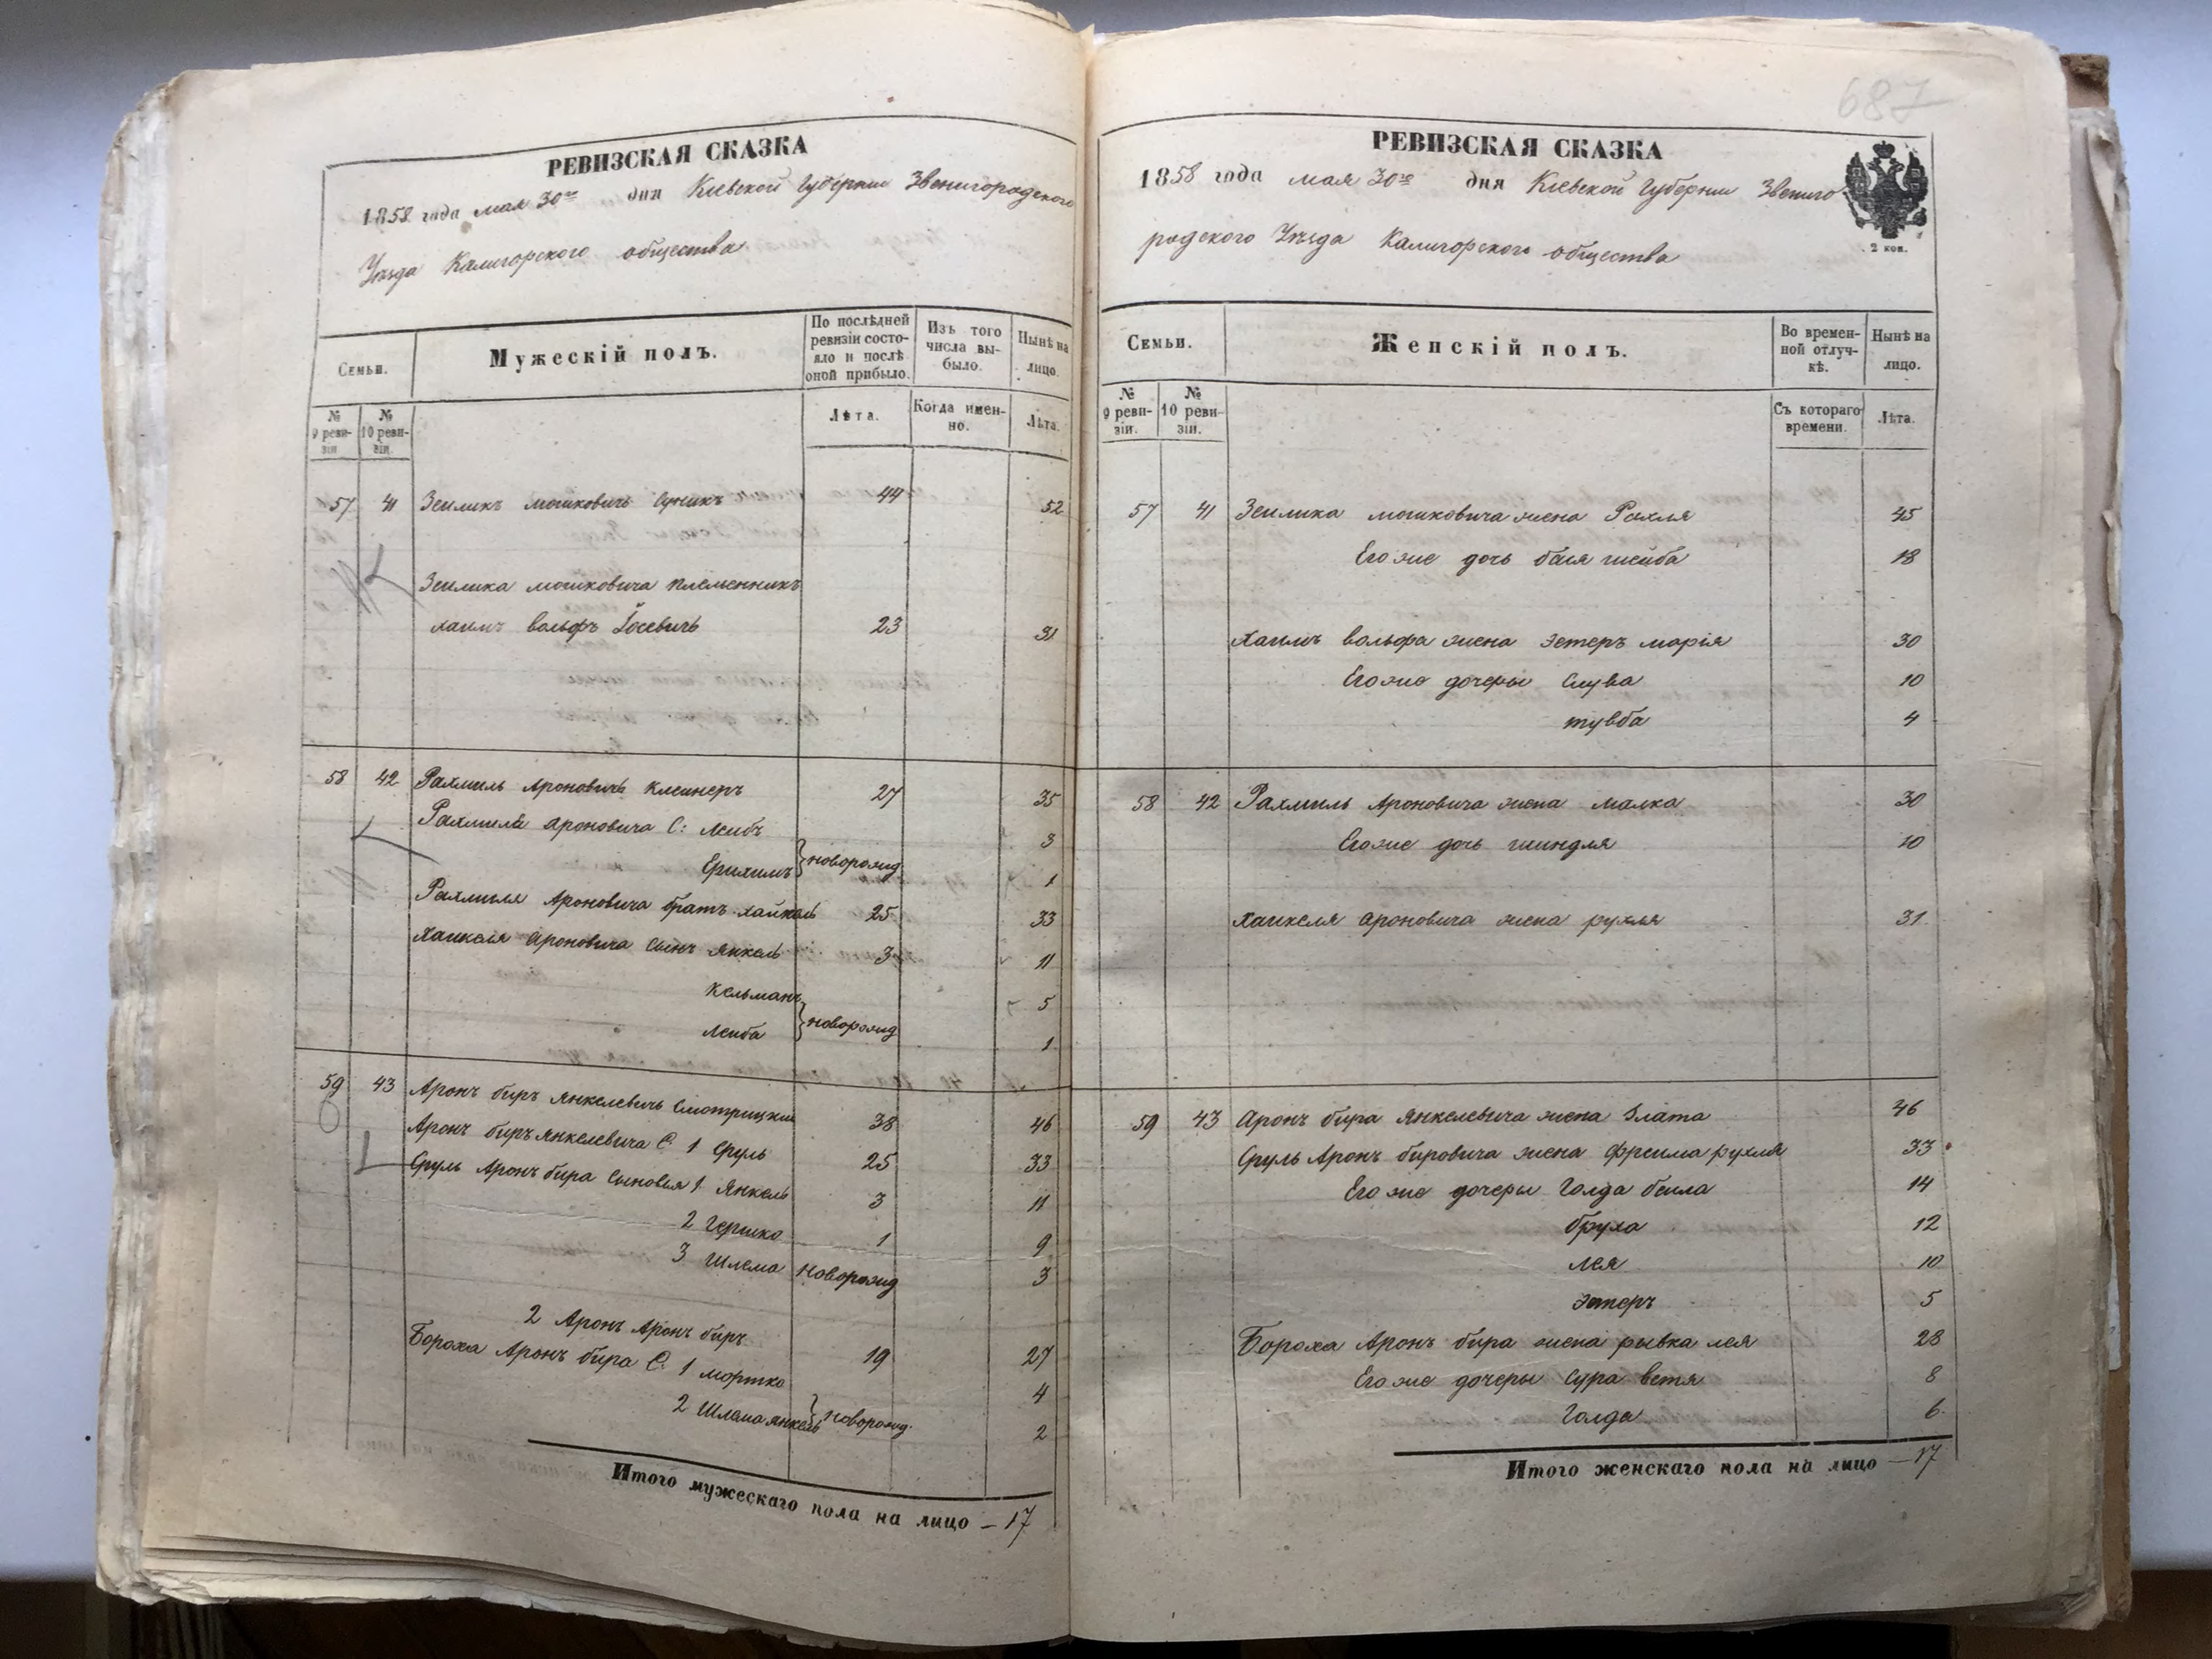 РЕВИЗСКАЯ СКАЗКА
1858 года мая 30го дня Кіевской Губерніи Звенигородскаго
Уѣзда Калигорского общества
Семьи.
Мужескій полъ.
По послѣдней ревизіи состояло и послѣ оной прибыло.
Изъ того числа выбыло.
Нынѣ на лицо.
№ 9 ревизіи
№ 10 ревизіи.
Лѣта.
Когда именно.
Лѣта.
57 41 Зейликъ Мошковичъ 44 52
Зейлика Мошковича племенникъ
Хаимъ Вольфъ Іосевичъ 23 31
58 42 Рахмиль Ароновичъ Клейнеръ 27 35
Рахмиля Ароновича С: Лейбъ 3
} новорожд
1
Рахмиля Ароновича братъ Хайкель 25 33
Хаикеля Ароновича сынъ Янкель 3 11
Кельманъ 5
} новорожд
Лейба 1
59 43 Аронъ биръ Янкелевичъ Смотрицкий 38 46
Аронъ биръ Янкелевича С. 1 Сруль 25 33
Сруль Аронъ бира сыновья 1 Янкель 3 11
2 Гершко 1 9
3 Шлема новорожд 3
2 Аронъ Аронъ биръ 19 27
Бороха Аронъ бира С. 1 Мортко 4
} новорожд.
2 Шлема Янкель 2
Итого мужескаго пола на лицо – 17
687
РЕВИЗСКАЯ СКАЗКА
1858 года мая 30го дня Кіевской Губерніи Звениго
родского Уѣзда Калигорского общества
2 коп.
Семьи.
Женскій полъ.
Во временной отлучкѣ.
Нынѣ на лицо.
№ 9 ревизіи.
№ 10 ревизіи.
Съ котораго времени.
Лѣта.
57 41 Зейлика Мошковича жена Рахля 45
Его же дочь Бася Шейба 18
Хаимъ Вольфа жена Эстеръ Марія 30
Его же дочеры Слува 10
Тувба 4
58 42 Рахмиль Ароновича жена Малка 30
Его же дочь Шиндля 10
Хаикеля Ароновича жена Рухля 31
59 43 Аронъ бира Янкелевича жена Злата 46
Сруль Аронъ бировича жена Фрейма Рухля 33
Его же дочеры Голда Бейла 14
Бруха 12
Лея 10
Эстеръ 5
Бороха Аронъ бира жена Рывка Лея 28
Его же дочеры Сура Ветя 8
Голда 6
Итого женскаго пола на лицо – 17